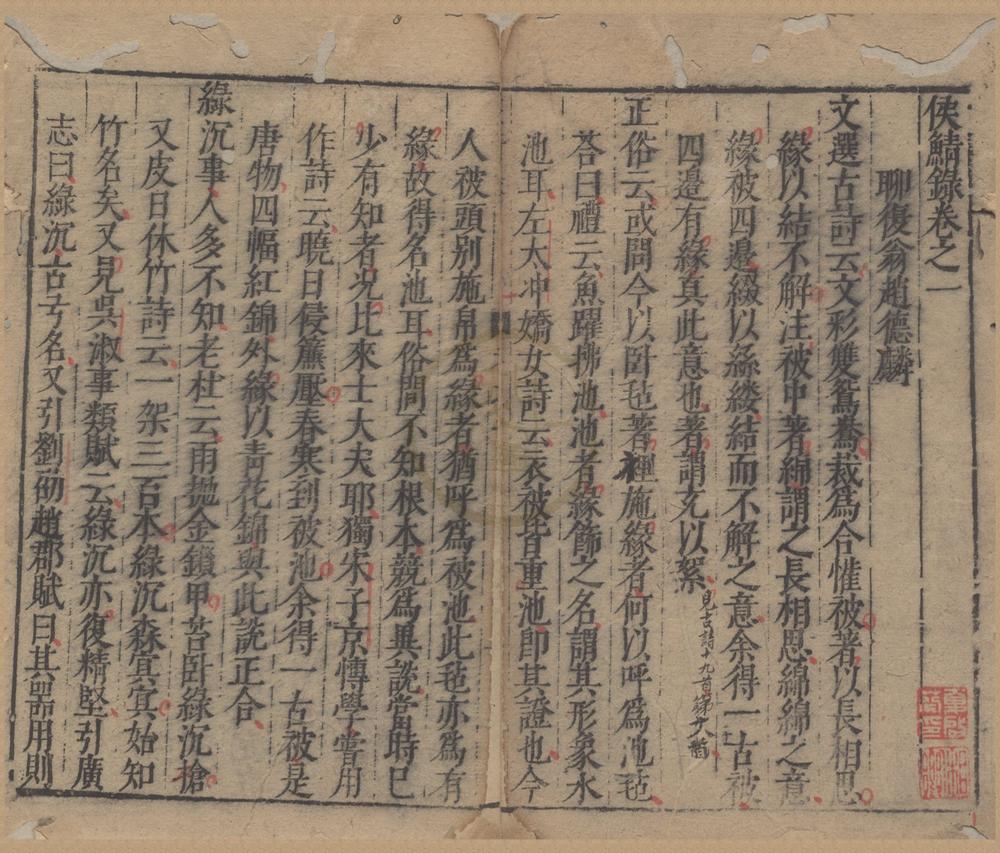 侯鯖錄卷之一
聊復翁趙德麟
文選古詩云文彩雙鴛鴦裁爲合懽被著以長相思
緣以結不解注被中著綿謂之長相思綿綿之意
緣被四邊綴以絲縷結而不解之意余得一古被
四邊有緣真此意也著謂充以絮見古詩十九首第十八首
正俗云或問今以卧毡著裡施緣者何以呼爲池毡
荅曰禮云魚躍拂池池者緣飾之名謂其形象水
池耳左太冲嬌女詩云衣被皆重池卽其證也今
人被頭别施帛爲緣者猶呼爲被池此毡亦爲有
緣故得名池耳俗間不知根本競爲異說當時已
少有知者况比來士大夫耶獨宋子京博學嘗用
作詩云曉日侵簾壓春寒到被池余得一古被是
唐物四幅紅錦外緣以青花錦與此說正合
緑沉事人多不知老杜云雨抛金鎖甲苔卧緑沉槍
又皮日休竹詩云一架三百本緑沉森冥冥始知
竹名矣又見吳淑事類賦云緑沉亦復精堅引廣
志曰緑沉古弓名又引劉劭趙郡賦曰其器用則